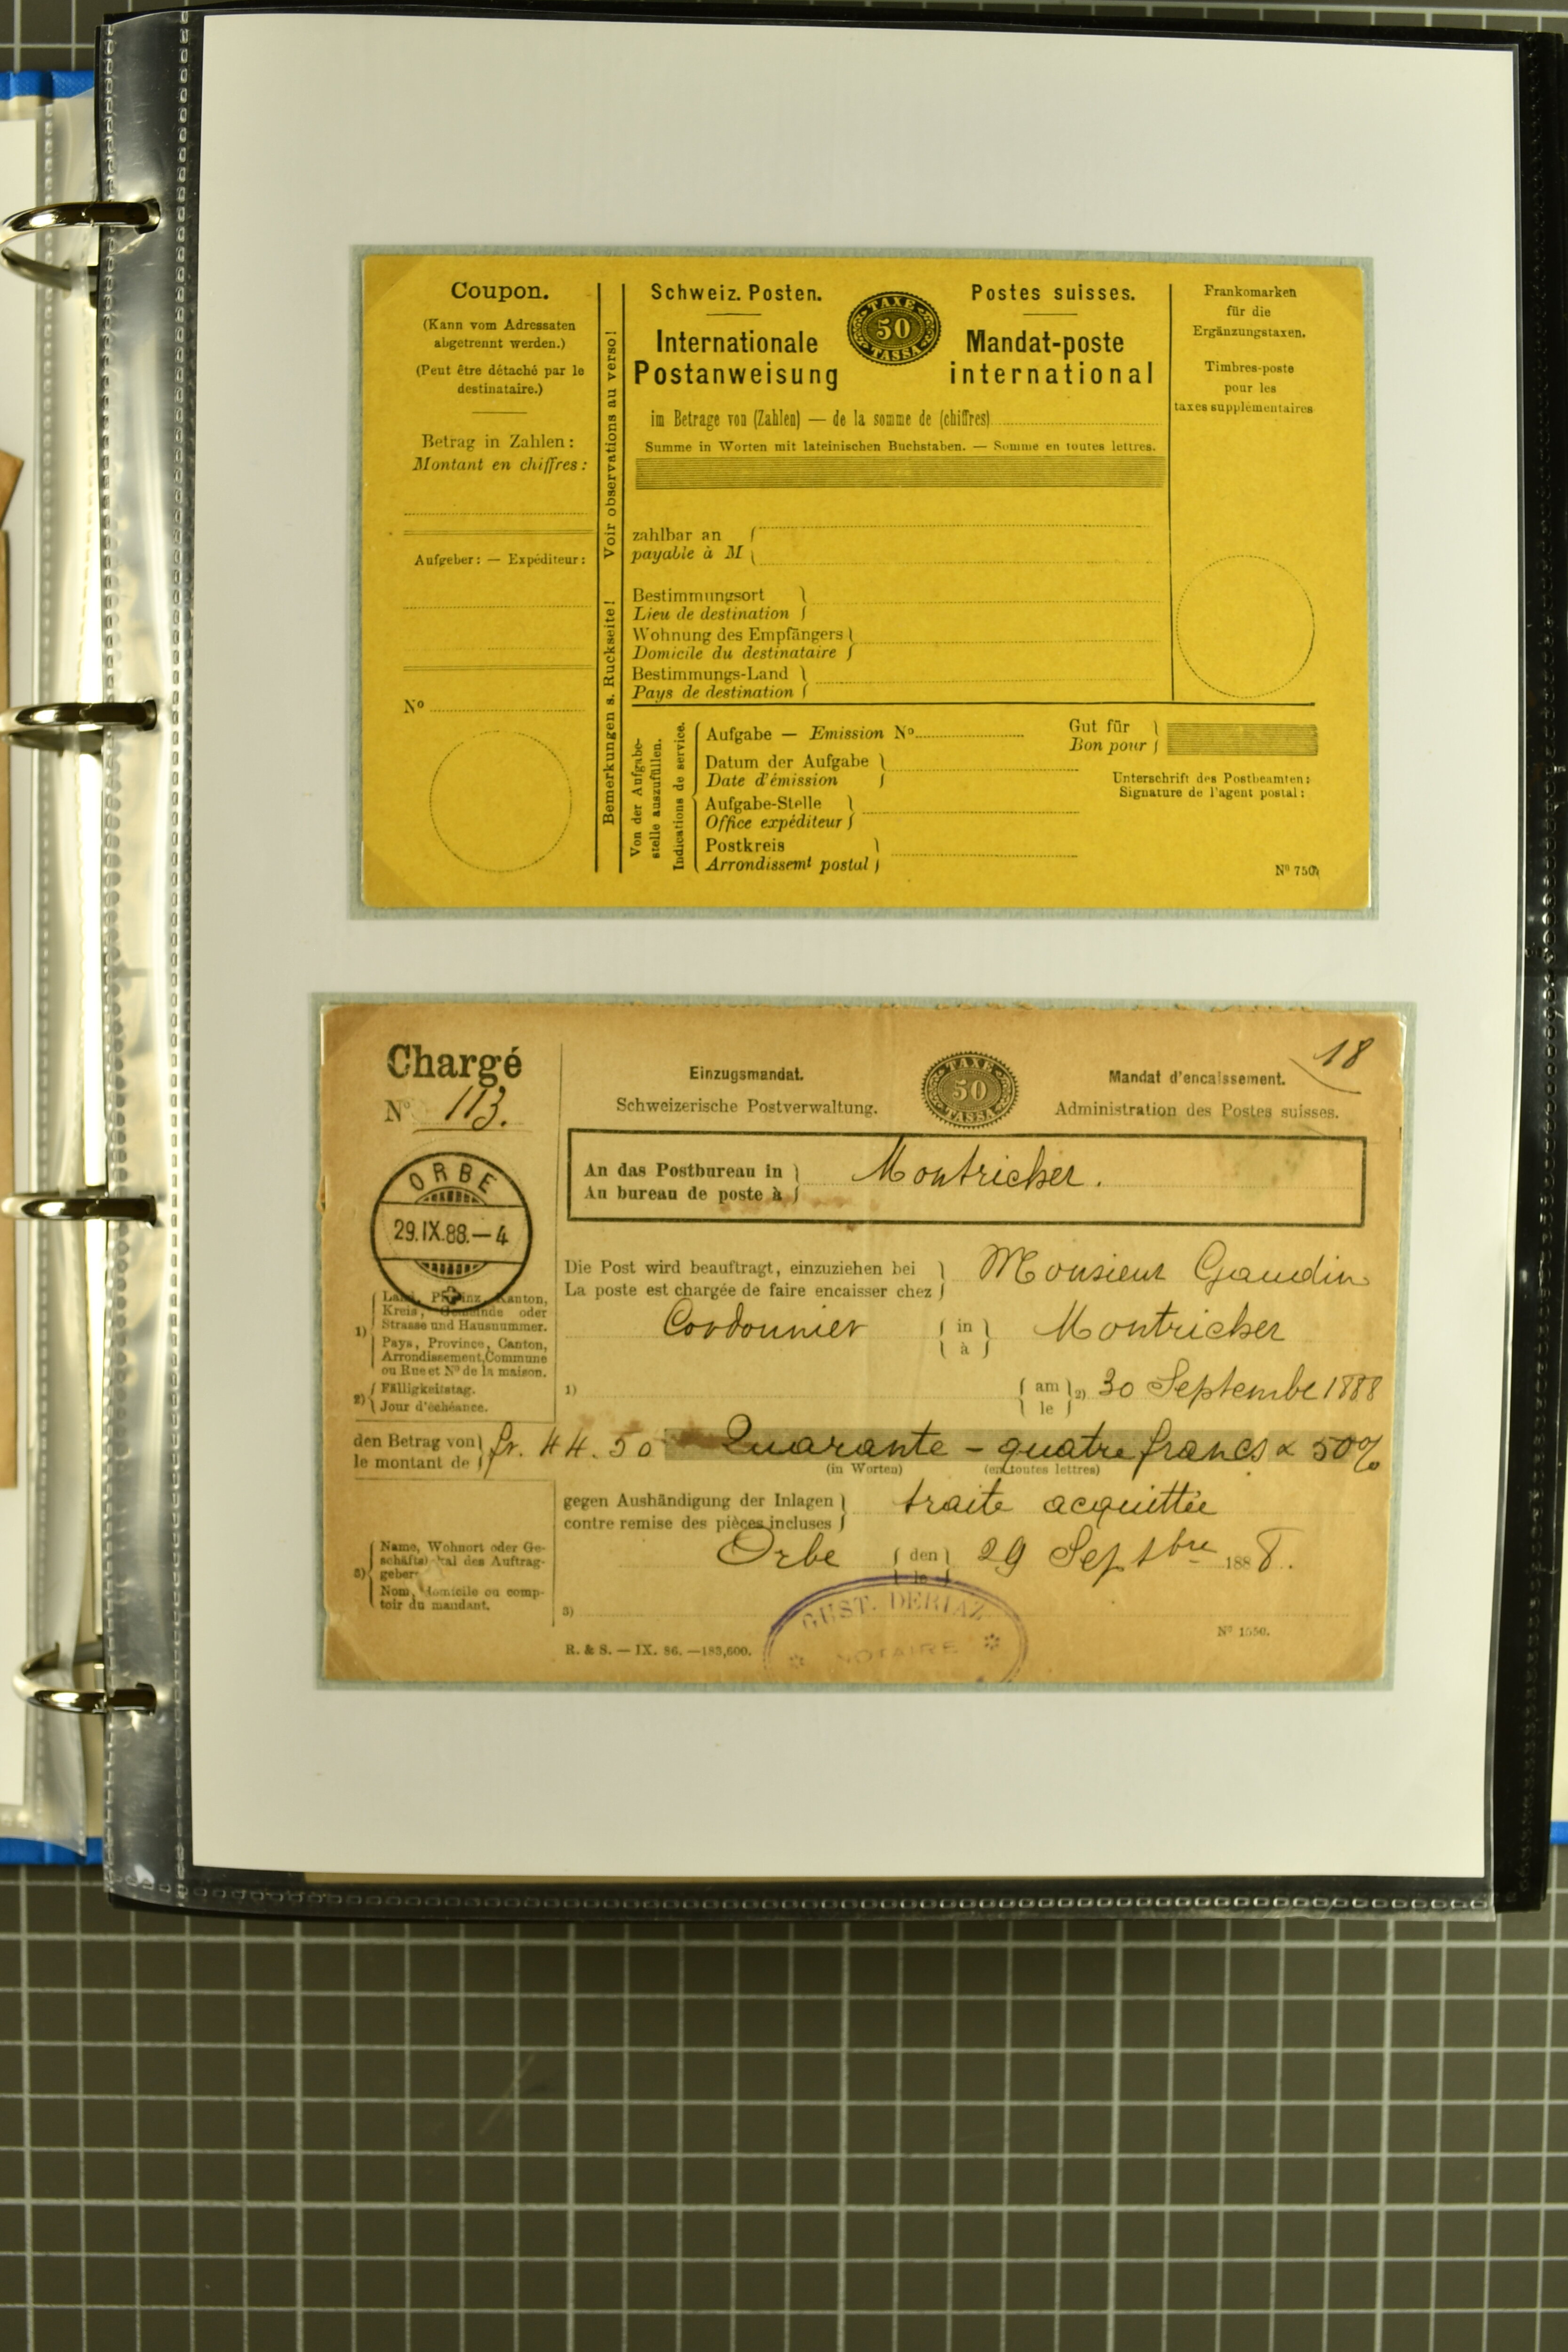 Coupon.
(Kann vom Adressaten
abgetrennt werden.)
(Peut être détaché par le
destinataire.)
Betrag in Zahlen:
Montant en chiffres:
Aufgeber: — Expéditeur:
Nº
Bemerkungen s. Ruckseite! Voir observations au verso!
Schweiz. Posten.
Internationale
Postanweisung
TAXE
50
TASSA
Postes suisses.
Mandat-poste
international
im Betrage von (Zahlen) — de la somme de (chiffres)
Summe in Worten mit lateinischen Buchstaben. — Somme en toutes lettres.
zahlbar an
payable à M
Bestimmungsort
Lieu de destination
Wohnung des Empfängers
Domicile du destinataire
Bestimmungs-Land
Pays de destination
Frankomarken
für die
Ergänzungstaxen.
Timbres-poste
pour les
taxes supplémentaires
Von der Aufgabe-
stelle auszufüllen.
Indications de service.
Aufgabe — Emission Nº
Datum der Aufgabe
Date d'émission
Aufgabe-Stelle
Office expéditeur
Postkreis
Arrondissemt postal
Gut für
Bon pour
Unterschrift des Postbeamten:
Signature de l'agent postal:
Chargé
Nº 113.
ORBE
29.IX.88.—4
18
Einzugsmandat.
Schweizerische Postverwaltung.
TAXE
50
TASSA
Mandat d'encaissement.
Administration des Postes suisses.
An das Postbureau in
Au bureau de poste à
Montricher.
Die Post wird beauftragt, einzuziehen bei
La poste est chargée de faire encaisser chez
Monsieur Gaudin
Cordonnier { in à } Montricher
1) Land, Provinz, Kanton,
Kreis, Gemeinde oder
Strasse und Hausnummer.
Pays, Province, Canton,
Arrondissement, Commune
ou Rue et Nº de la maison.
2) Fälligkeitstag.
Jour d'échéance.
1)
{ am le } 2) 30 Septembre 1888
den Betrag von
le montant de
fr. 44.50 Quarante - quatre francs & 50%
(in Worten) (en toutes lettres)
gegen Aushändigung der Inlagen
contre remise des pièces incluses
traite acquittée
Orbe { den le } 29 Septbre 1888.
3) Name, Wohnort oder Ge-
schäftslokal des Auftrag-
gebers
Nom, domicile ou comp-
toir du mandant.
3)
GUST. DERIAZ
NOTAIRE
R. & S. — IX. 86. —183,600.
Nº 1550.